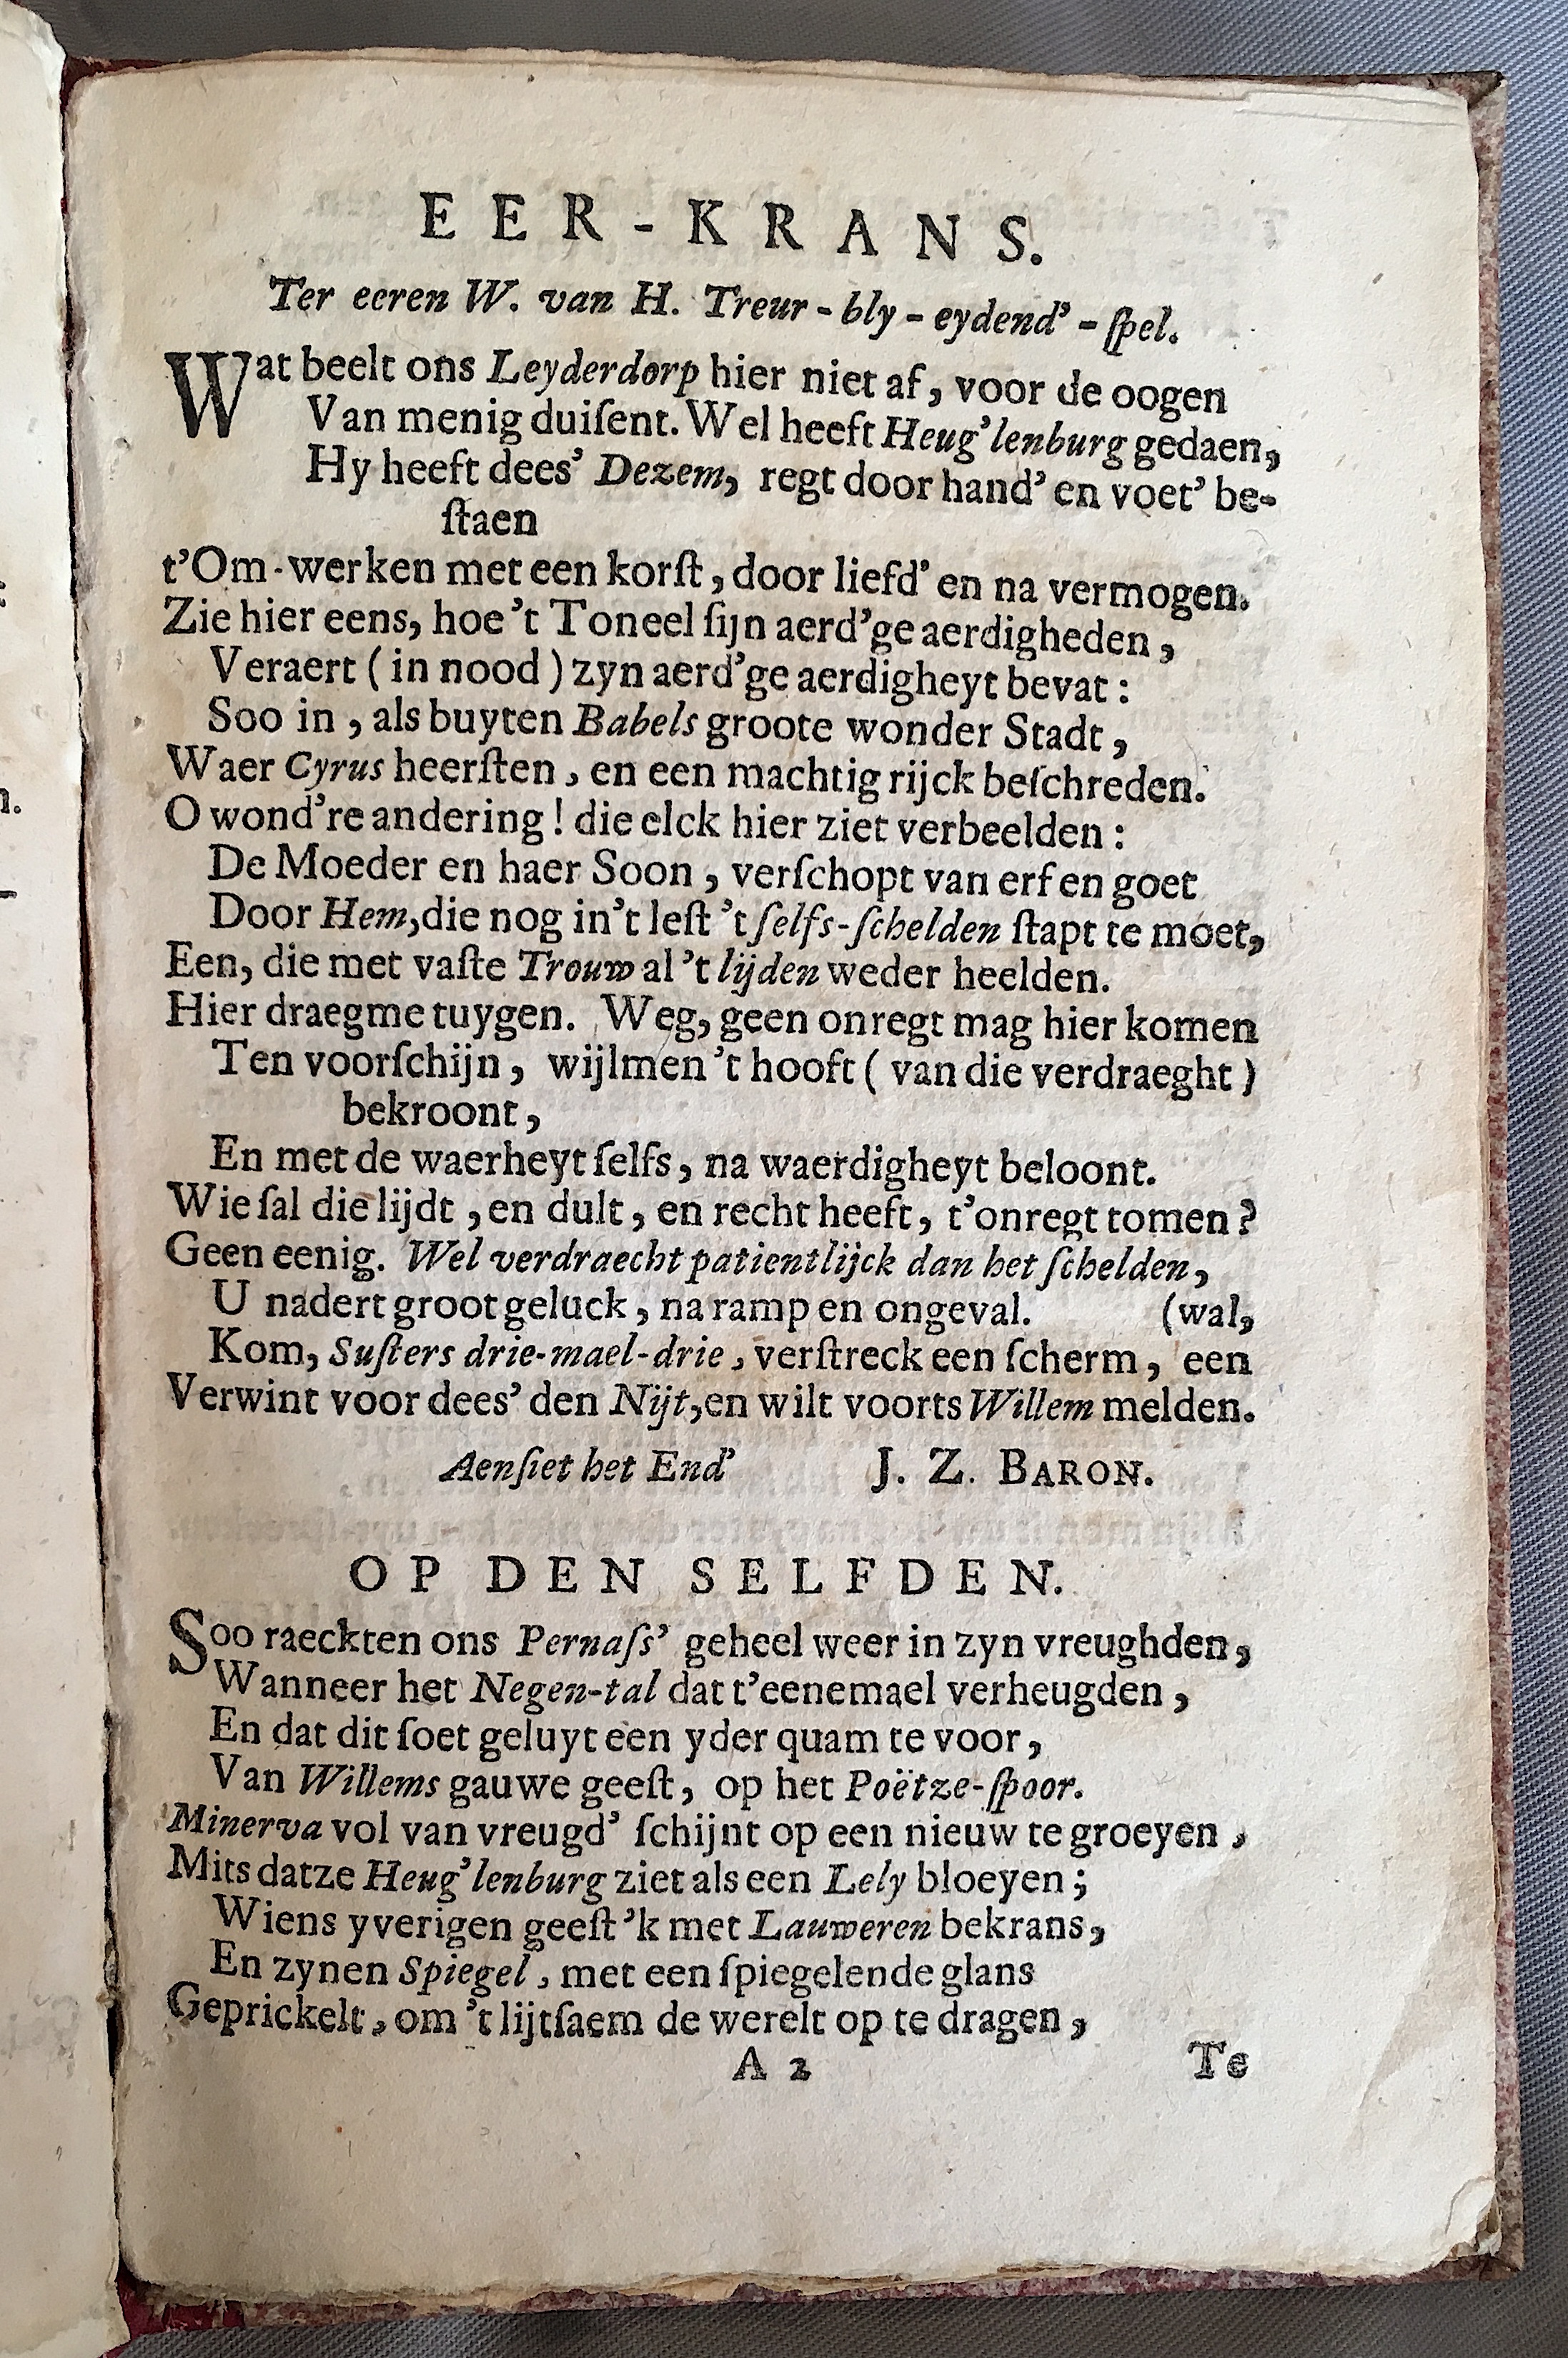 EER-KRANS.
Ter eeren W. van H. Treur-bly-eydend'-ſpel.
Wat beelt ons Leyderdorp hier niet af, voor de oogen
Van menig duiſent. Wel heeft Heug'lenburg gedaen,
Hy heeft dees' Dezem, regt door hand' en voet' be-
ſtaen
t'Om-werken met een korſt, door liefd' en na vermogen.
Zie hier eens, hoe 't Toneel ſijn aerd'ge aerdigheden,
Veraert (in nood) zyn aerd'ge aerdigheyt bevat:
Soo in, als buyten Babels groote wonder Stadt,
Waer Cyrus heerſten, en een machtig rijck beſchreden.
O wond're andering! die elck hier ziet verbeelden:
De Moeder en haer Soon, verſchopt van erf en goet
Door Hem, die nog in't leſt 't ſelfs-ſchelden ſtapt te moet,
Een, die met vaſte Trouw al 't lijden weder heelden.
Hier draegme tuygen. Weg, geen onregt mag hier komen
Ten voorſchijn, wijlmen 't hooft (van die verdraeght)
bekroont,
En met de waerheyt ſelfs, na waerdigheyt beloont.
Wie ſal die lijdt, en dult, en recht heeft, t'onregt tomen?
Geen eenig. Wel verdraecht patientlijck dan het ſchelden,
U nadert groot geluck, na ramp en ongeval. (wal,
Kom, Suſters drie-mael-drie, verſtreck een ſcherm, een
Verwint voor dees' den Nijt, en wilt voorts Willem melden.
Aenſiet het End' J. Z. BARON.
OP DEN SELFDEN.
Soo raeckten ons Pernaſs' geheel weer in zyn vreughden,
Wanneer het Negen-tal dat t'eenemael verheugden,
En dat dit ſoet geluyt een yder quam te voor,
Van Willems gauwe geeſt, op het Poëtze-ſpoor.
Minerva vol van vreugd' ſchijnt op een nieuw te groeyen,
Mits datze Heug'lenburg ziet als een Lely bloeyen;
Wiens yverigen geeſt 'k met Lauweren bekrans,
En zynen Spiegel, met een ſpiegelende glans
Geprickelt, om 't lijtſaem de werelt op te dragen,
A 2 Te